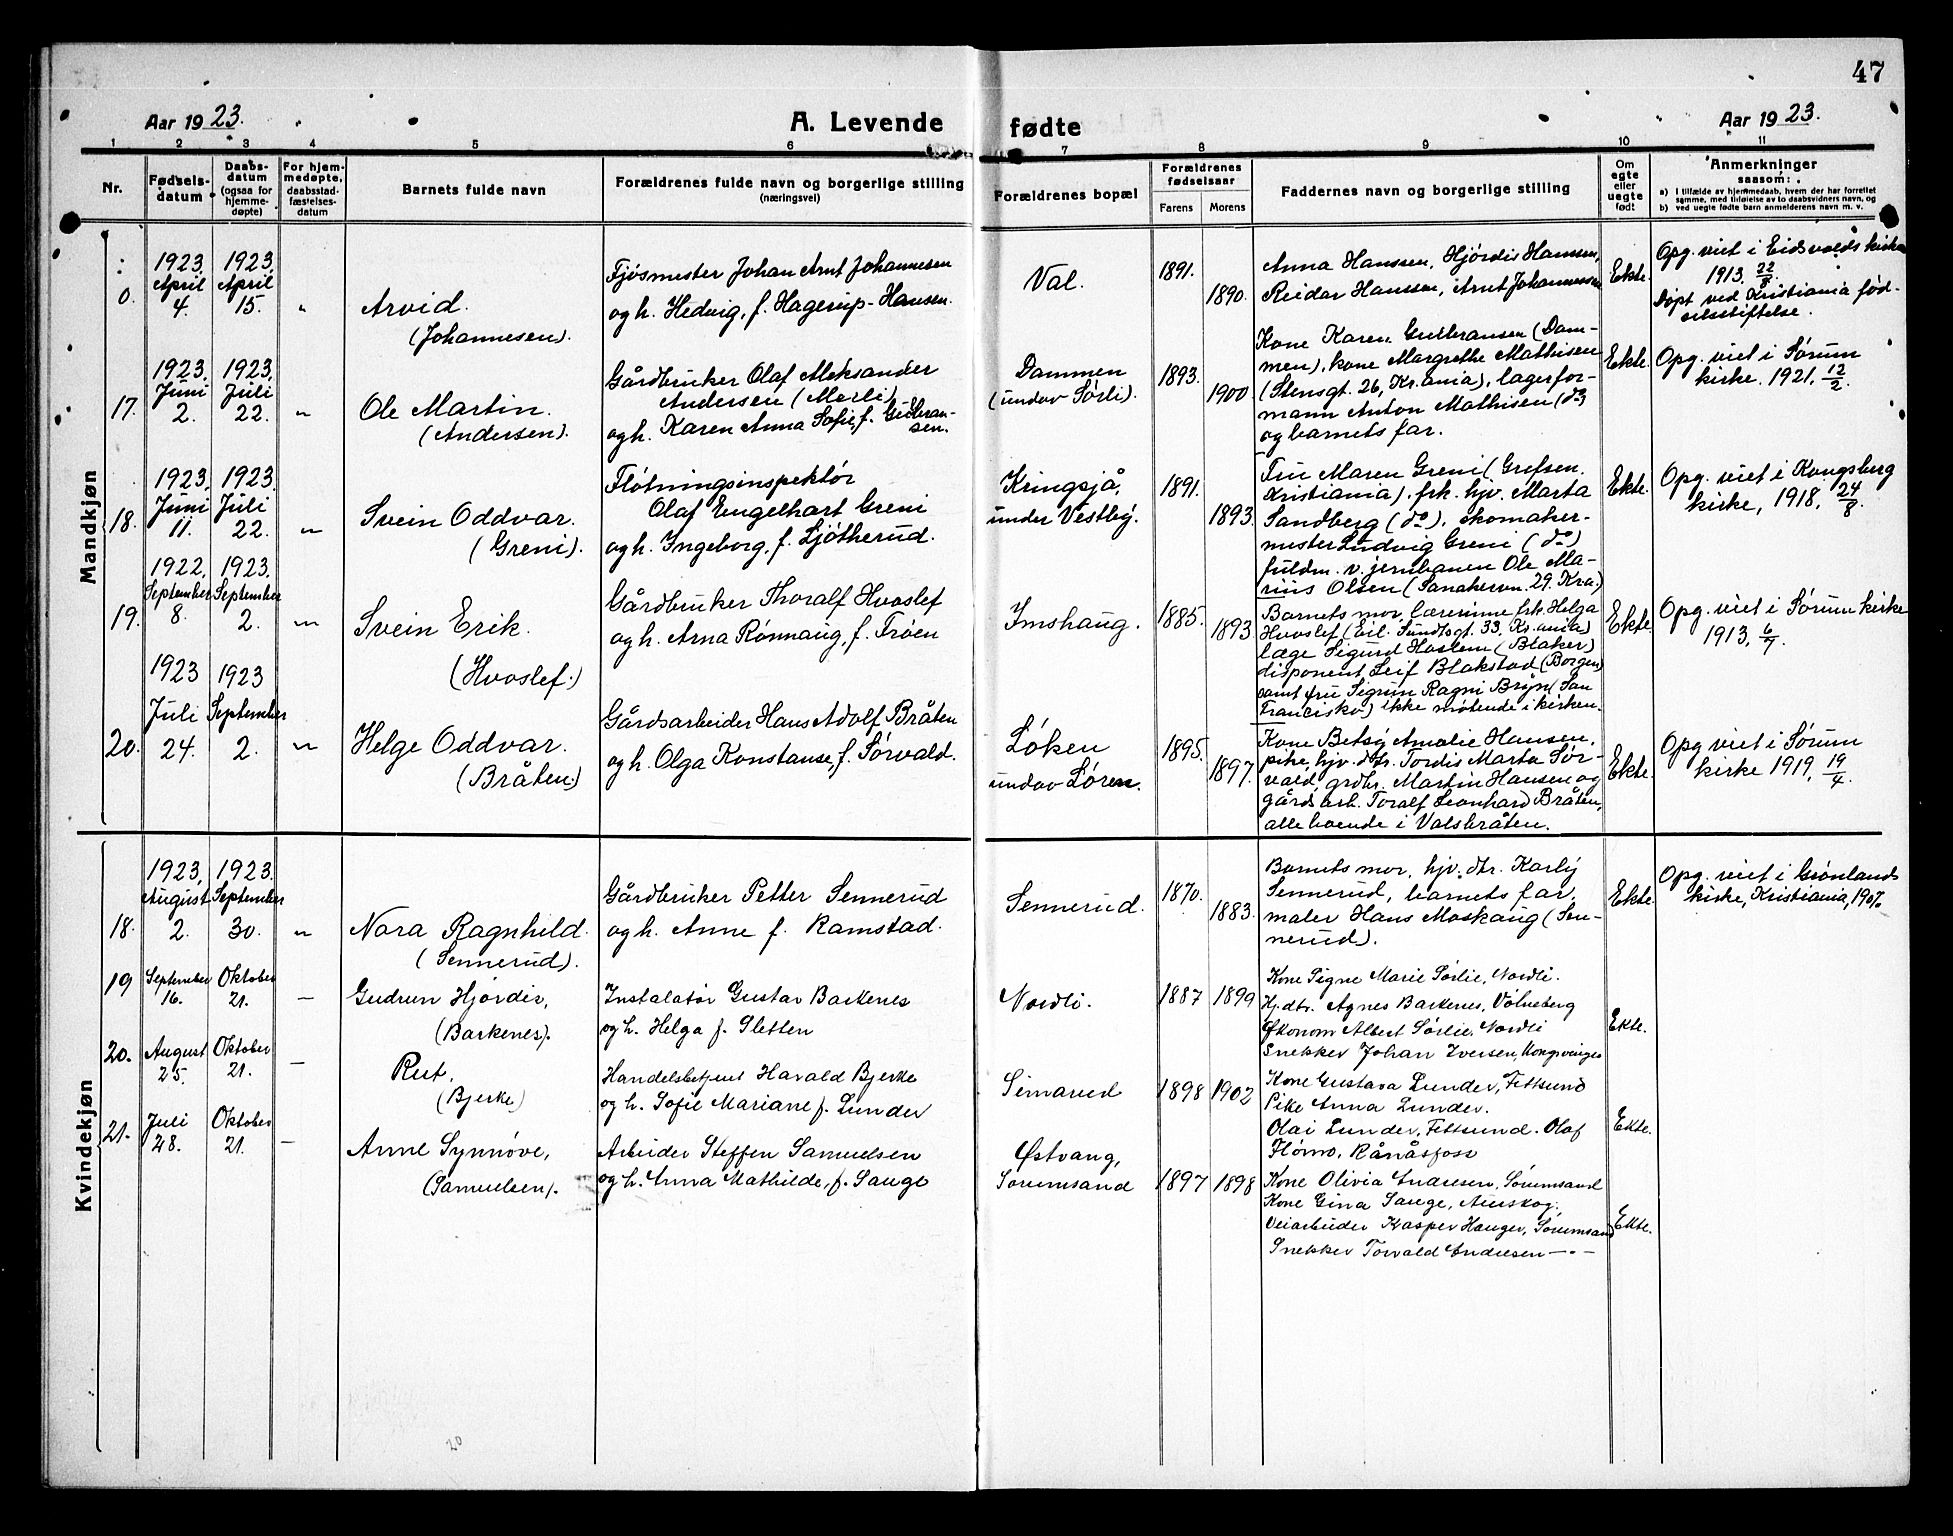 47
Aar 1923.
A. Levende
fødte
Aar 1923.
1 2 3 4 5 6 7 8 9 10 11
Nr.
Fødselsdatum
Daabsdatum (ogsaa for hjemmedøpte)
For hjemmedøpte, daabsstadfæstelsesdatum
Barnets fulde navn
Forældrenes fulde navn og borgerlige stilling
(næringsvei)
Forældrenes bopæl
Forældrenes fødselsaar
Farens Morens
Faddernes navn og borgerlige stilling
Om egte eller uegte født
Anmerkninger
saasom:
a) I tilfælde av hjemmedaab, hvem der har forrettet
samme, med tilføielse av to daabsvidners navn, og
b) ved uegte fødte barn anmelderens navn m. v.
Mandkjøn
: 0.
1923. April 4.
1923. April 15.
"
Arvid.
(Johannesen).
Fjøsmester Johan Arnt Johannesen
og h. Hedvig, f. Hagerup-Hansen.
Val.
1891.
1890.
Anna Hanssen, Hjördis Hanssen,
Reidar Hanssen, Arnt Johannessen
Ekte.
Opg. viet i Eidsvolds kirke
1913. 22/8.
Døpt ved Kristiania fød-
selsstiftelse.
17.
1923. Juni 2.
1923. Juli 22.
"
Ole Martin.
(Andersen).
Gårdbruker Olaf Aleksander
Andersen (Marli)
og h. Karen Anna Sofie, f. Gulbran-
sen.
Dammen
(undav Sørli).
1893.
1900
Kone Karen Gulbransen (Dam-
men), kone Margrethe Mathisen
(Stensgt. 26, Kr.ania), lagerfor-
mann Anton Mathisen (do)
og barnets far.
Ekte.
Opg. viet i Sørum
kirke. 1921, 12/2.
18.
1923. Juni 11.
1923. Juli 22.
"
Svein Oddvar.
(Greni).
Fløtningsinspektør
Olaf Engelhart Greni
og h. Ingeborg, f. Ljøtherud.
Kringsjå,
under Vestby.
1891.
1893.
Fru Maren Greni (Grefsen.
Kristiania). frk. hjv. Marta
Sandberg (do), skomaker-
mester Ludvig Greni (do)
fuldm. v. jernbanen Ole Ma-
rius Olsen (Sanakervn. 29. Kra.)
Ekte.
Opg. viet i Kongsberg
kirke, 1918, 24/8.
19.
1922. September 8.
1923. September 2.
"
Svein Erik.
(Hvoslef.)
Gårdbruker Thoralf Hvoslef
og h. Arna Rønnaug, f. Frøen
Imshaug.
1885.
1893
Barnets mor, lærerinne frk. Helga
Hvoslef (Eil. Sundtsgt. 33, Kr.ania)
læge Sigurd Haslem (Blaker)
disponent Leif Blakstad (Borgen)
samt fru Sigrun Ragni Bryn (San
Francisko) ikke møtende i kirken.
Ekte.
Opg. viet i Sørum kirke
1913, 6/7.
20.
1923 Juli 24.
1923 September 2.
"
Helge Oddvar.
(Bråten.)
Gårdsarbeider Hans Adolf Bråten
og h. Olga Konstanse, f. Sørvald.
Løken
undav Løren.
1895.
1897.
Kone Betsy Amalie Hansen,
pike, hjv. dtr. Tordis Marta Sør-
vald, grdbr. Martin Hansen og
gårdsarb. Toralf Leonhard Bråten,
alle boende i Valsbråten.
Ekte.
Opg viet i Sørum
kirke 1919, 19/4.
Kvindekjøn
18.
1923. August 2.
1923. September 30.
"
Nora Ragnhild.
(Sennerud).
Gårdbruker Petter Sennerud
og h. Anne f. Ramstad.
Sennerud.
1870.
1883.
Barnets mor, hjv. dtr. Karly
Sennerud, barnets far,
maler Hans Moskaug (Sen-
nerud).
Ekte.
Opg. viet i Grønlands
kirke, Kristiania,
19
September 16.
Oktober 21.
—
Gudrun Hjördis,
(Barkenes).
Instalatør Gustav Barkenes
og h. Helga f. Sletten
Nordli.
1887 1899
Kone Signe Marie Sørlie, Nordli.
Hj. dtr. Agnes Barkenes, Volneberg
Økonom Albert Sørlie, Nordli
Snekker Johan Iversen, Kongsvinger
Ekte.
20.
August 25.
Oktober 21.
—
Rut,
(Bjerke)
Handelsbetjent Harald Bjerke
og h. Sofie Mariane f. Lunder
Simarud
1898 1902
Kone Gustava Lunder, Fettsund
Pike Anna Lunder.
Olai Lunder, Fettsund. Olaf
Flørno, Rånåsfoss
Ekte.
21.
Juli 28.
Oktober 21.
—
Anne Synnøve,
(Samuelsen).
Arbeider Steffen Samuelsen
og h. Anna Mathilde, f. Sauge
Østvang,
Sørumsand
1897 1898
Kone Olivia Andresen, Sørumsand
Kone Gina Sauge, Aurskog.
Veiarbeider Kasper Hanger, Sørumsand
Snekker Torvald Andresen —"—
Ekte.
20